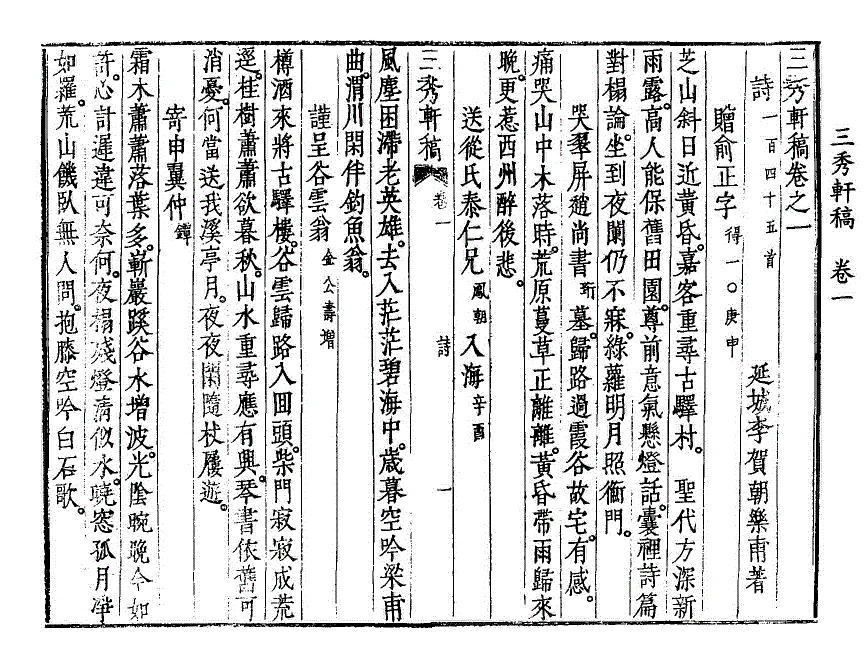 三秀軒稿　卷一
三秀軒稿卷之一
詩 一百四十五首　延城李賀朝樂甫著
贈俞正字 得一〇庚申
芝山斜日近黃昏。嘉客重尋古驛村。聖代方深新
雨露。高人能保舊田園。尊前意氣懸燈話。囊裡詩篇
對榻論。坐到夜闌仍不寐。綠蘿明月照衡門。
哭翠屏趙尚書 珩 墓。歸路過霞谷故宅。有感。
痛哭山中木落時。荒原蔓草正離離。黃昏帶雨歸來
晚。更惹西州醉後悲。
送從氏泰仁兄 鳳朝 入海 辛酉
三秀軒稿　卷一　詩　一
風塵困滯老英雄。去入茫茫碧海中。歲暮空吟梁甫
曲。渭川閑伴釣魚翁。
謹呈谷雲翁 金公壽增
樽酒來將古驛樓。谷雲歸路入回頭。柴門寂寂成荒
逕。桂樹蕭蕭欲暮秋。山水重尋應有興。琴書依舊可
消憂。何當送我溪亭月。夜夜閑隨杖屨遊。
寄申翼仲 鐸
霜木蕭蕭落葉多。嶄巖蹊谷水增波。光陰晼晩今如
許。心計遲違可奈何。夜榻殘燈清似水。曉窓孤月淨
如羅。荒山饑臥無人問。抱膝空吟白石歌。